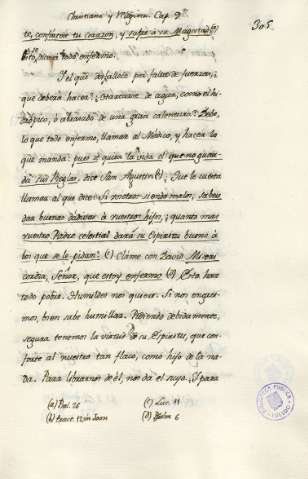 Christiano y Virgines. Cap. 9º
305
te, confortate tu corazon, y sufre a su Magestad (a)
Esto, digo, todo enfermo.
Y el que desfalleze por faltas de fuerzas,
que deberá hacer? hartarse de agua, como el hi-
dropico, ó abrasado de una gran calentura? Debe,
lo que todo enfermo, llamar al Médico, y hacer lo
que manda: pues se quita la vida el que no guar-
da sus Reglas, dice San Agustin (b). Sn. Lucas le cuenta
llamar al que dice: Si vosotros siendo malos, sabeis
dar buenas dadivas á vuestros hijos, quanto mas
vuestro Padre celestial dará su Espiritu bueno á
los que se le pidan? (c) Clame con David: Miseri-
cordia, Señor, que estoy enfermo (d) Esto hace
todo pobre. Humildes nos quiere. Si nos engrei-
mos, bien sabe humillar. Pidiendo debidamente,
segura tenemos la virtud de su Espiritu, que con-
forte al nuestro tan flaco, como hijo de la na-
da. Para librarnos de él, nos da el suyo. Y para
(a) Psal. 26
(c) Luc. 11
(b) tract. 12 in Joan
(d) Psalm 6
BIBLIOTECA PUBLICA
TOLEDO